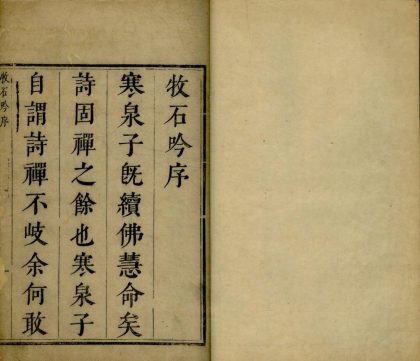 牧石吟序
寒泉子旣續佛慧命矣
詩固禪之餘也寒泉子
自謂詩禪不岐余何敢
牧石吟序